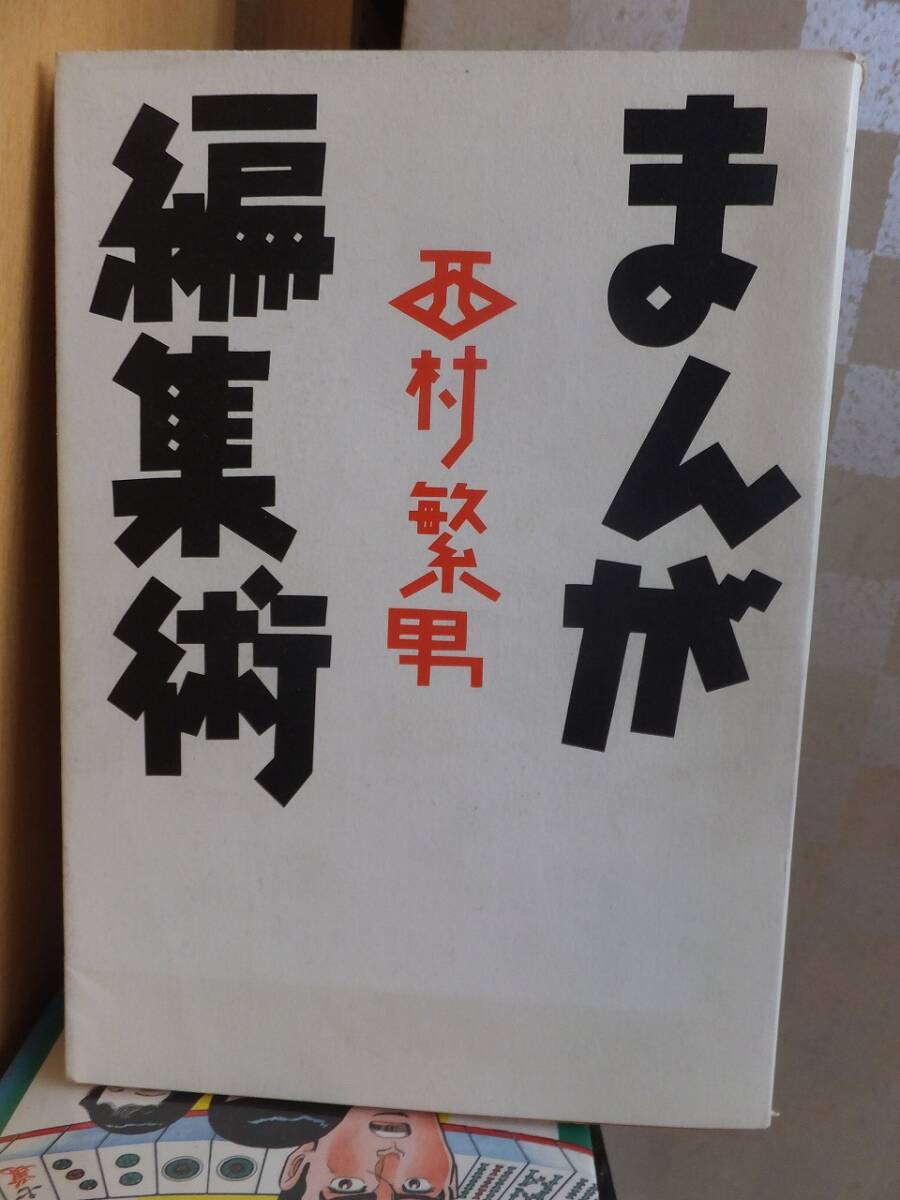 まんが
西村繁男
編集術
七萬